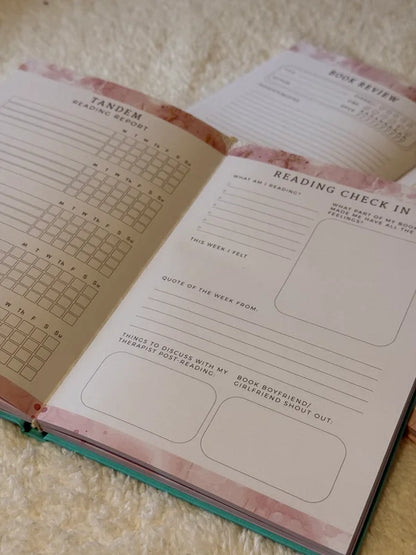 TANDEM
READING REPORT
M T W Th F S Su
M T W Th F S Su
M T W Th F S Su
M T W Th F S Su
M T W Th F S Su
BOOK REVIEW
READING CHECK IN
WHAT AM I READING?
WHAT PART OF MY BOOK
MADE ME HAVE ALL THE
FEELINGS?
THIS WEEK I FELT
QUOTE OF THE WEEK FROM:
THINGS TO DISCUSS WITH MY
THERAPIST POST READING:
BOOK BOYFRIEND/
GIRLFRIEND SHOUT OUT: